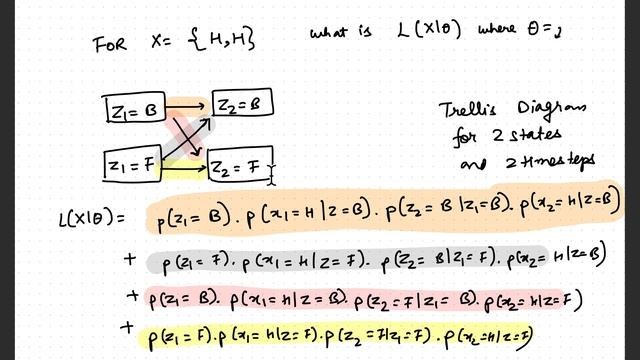 FOR X = {H,H}
what is L(X|θ) where θ=,
Z₁ = B
Z₂ = B
Z₁ = F
Z₂ = F
Trellis Diagram
for 2 states
and 2 timesteps
L(X|θ) = p(z₁ = B). p(x₁ = H | z = B). p(Z₂ = B | z₁ = B). p(x₂ = H | z = B)
+ p(z₁ = F). p(x₁ = H | z = F). p(Z₂ = B | z₁ = F). p(x₂ = H | z = B)
+ p(z₁ = B). p(x₁ = H | z = B). p(z₂ = F | z₁ = B). p(x₂ = H | z = F)
+ p(z₁ = F). p(x₁ = H | z = F). p(z₂ = F | z₁ = F). p(x₂ = H | z = F)